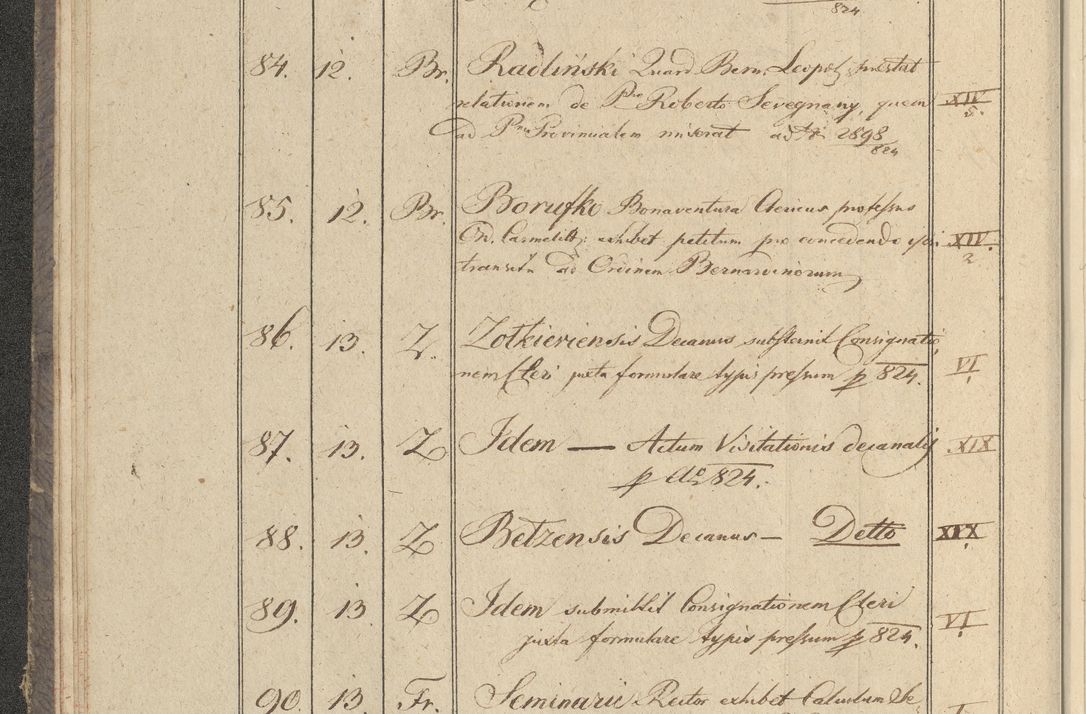 824
84. 12. Br. Radliński Quard. Bern. Leopol. praestat
relationem de Pre Roberto Sevegnany, quem XIV/5.
ad Pm Provincialem miserat ad № 2898/824
85. 12. Br. Borufki Bonaventura Clericus professus
Ord. Carmelit: exhibet petitum pro concedendo sibi XIV./2
transitu ad Ordinem Bernardinorum
86. 13. Z. Zolkieviensis Decanus substernit Consignatio
nem Cleri juxta formulare typis pressum p 824. VI/1
87. 13. Z Idem — Actum Visitationis decanalis XIX
p Ao 824.
88. 13. Z Betzensis Decanus — Detto XIX/1
89. 13 Z Idem submittit Consignationem Cleri
juxta formulare typis pressum p 824. VI/1
90. 13. Fr. Seminarii Rector exhibet Calculum Se-